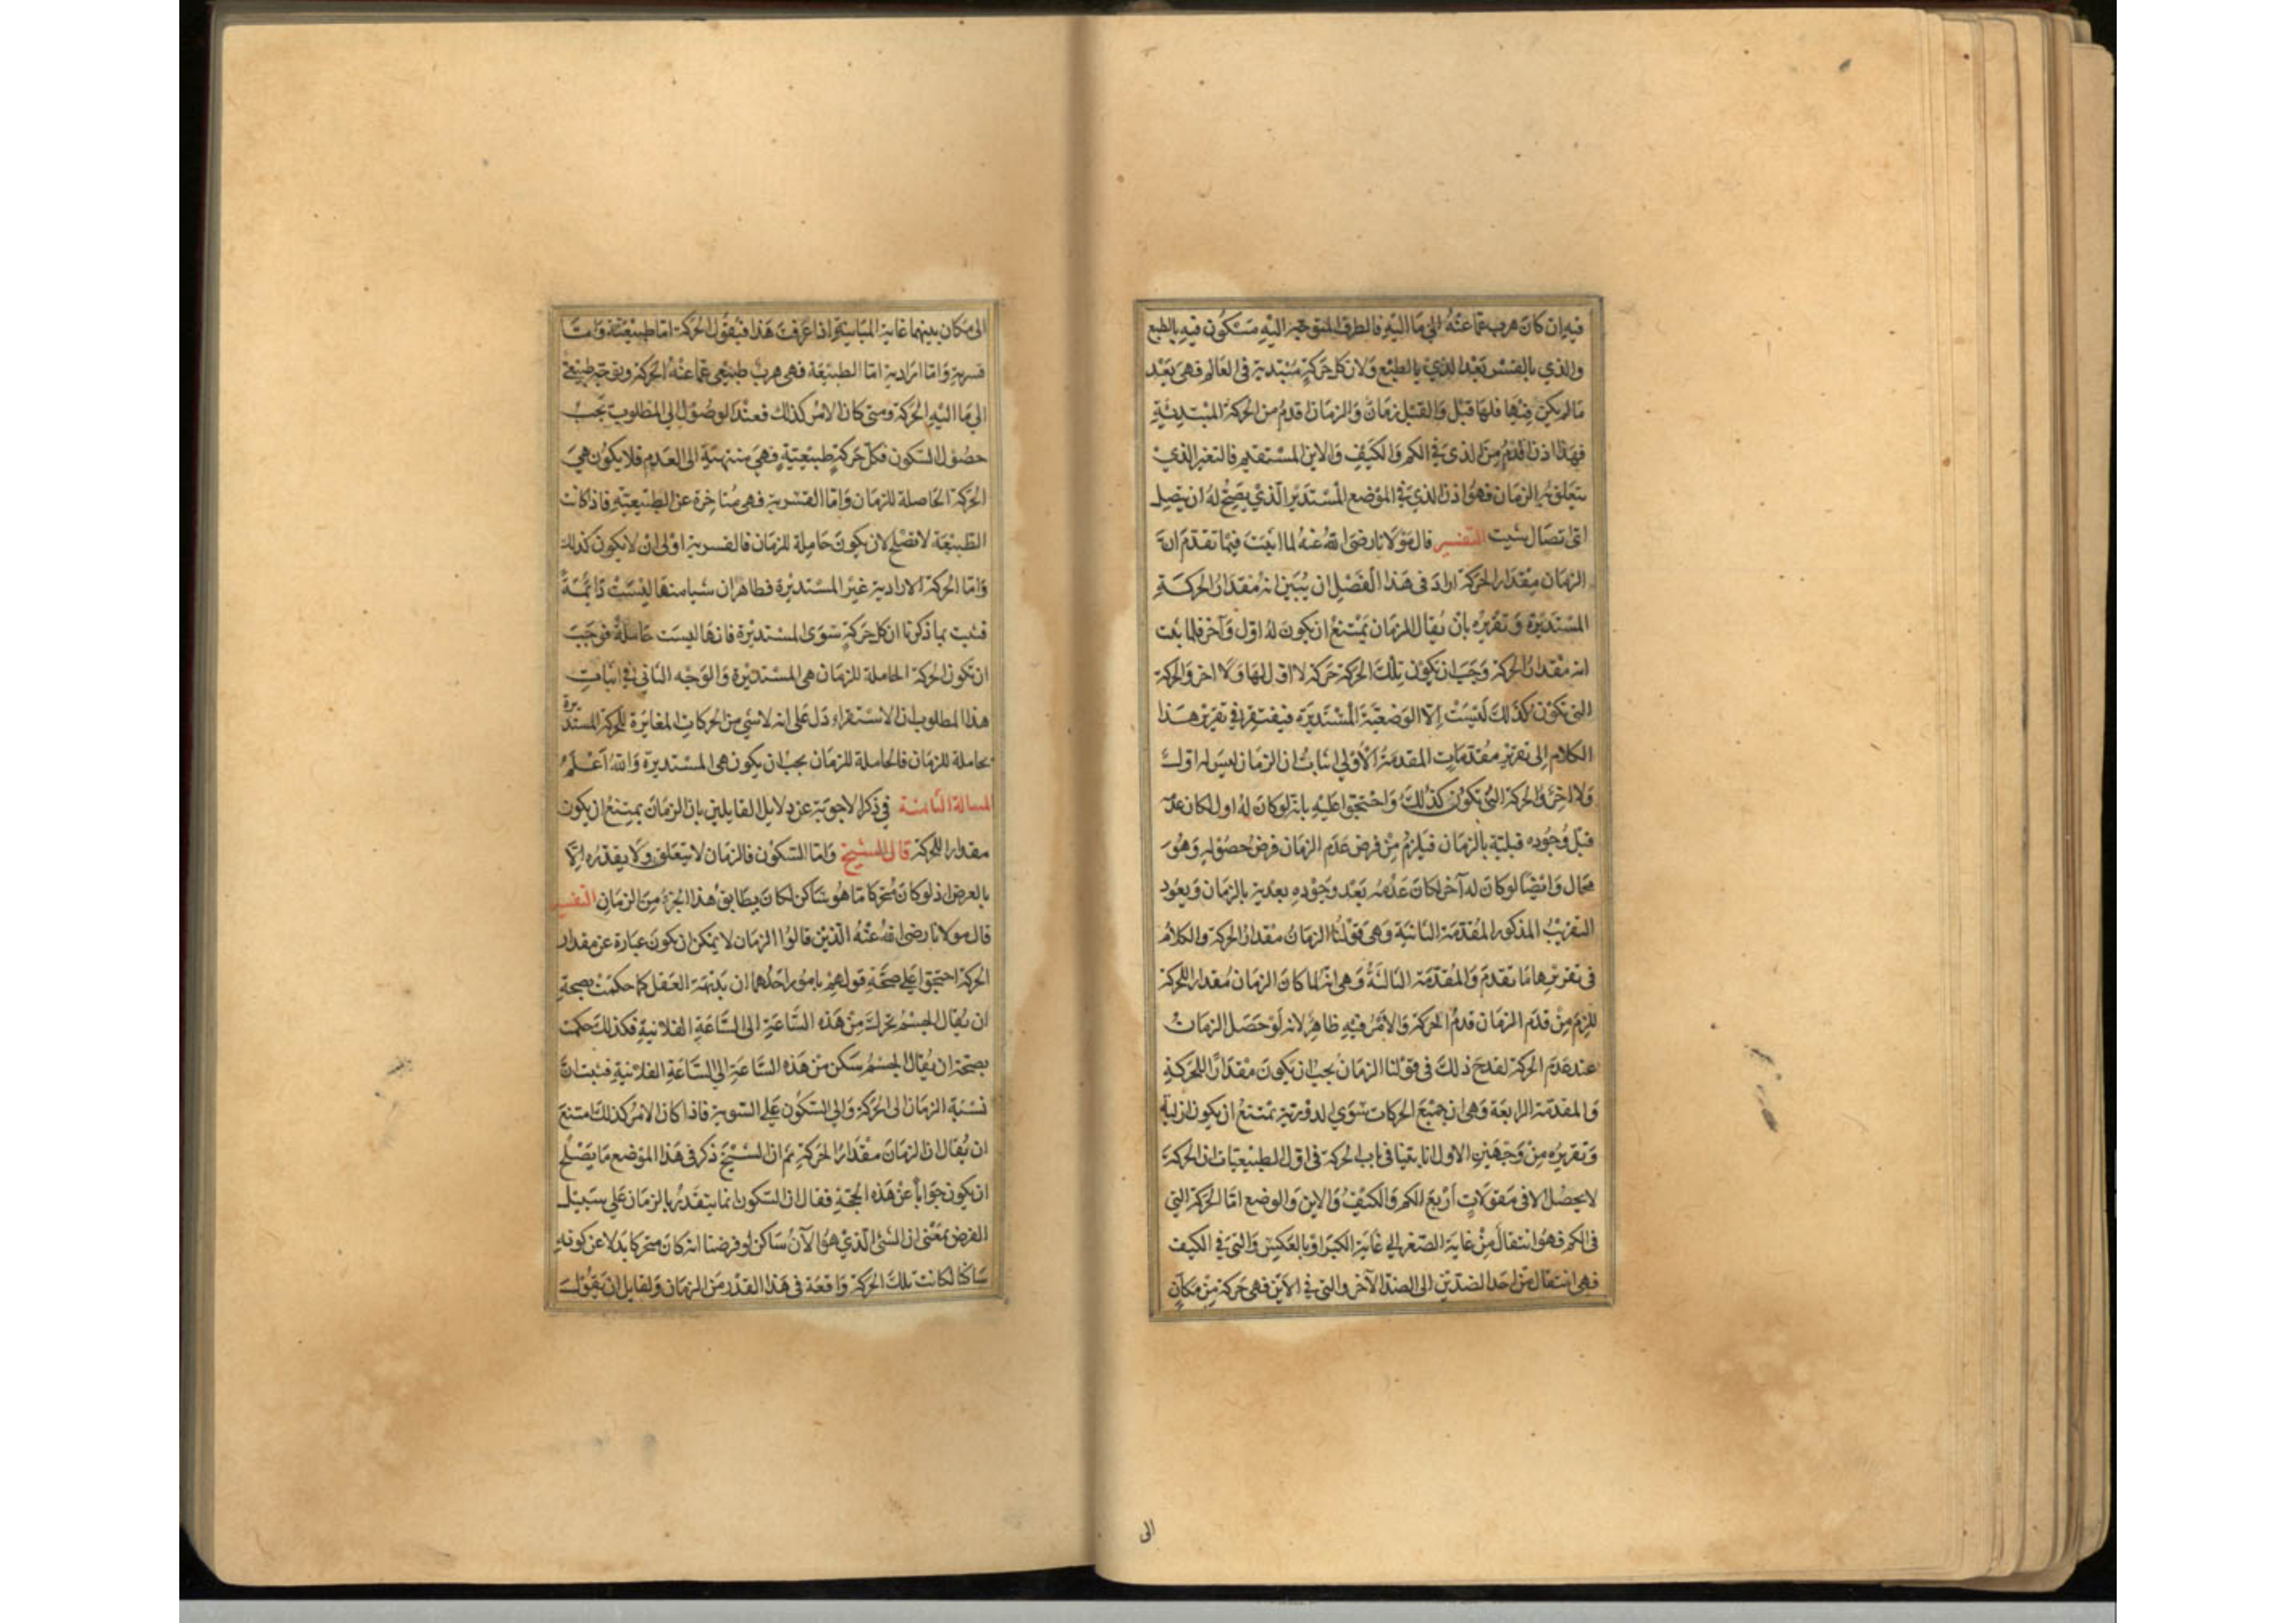 فيه ان كان هرب عما عنه الى ما اليه فالطرف المتوجه اليه مستكون فيه بالطبع
والذي بالقسر بعد الذي بالطبع ولان كل حركة مبتدية في العالم فهى بعد
ما لم يكن فيها فلها قبل والقبل زمان والزمان اقدم من الحركة المبتدية
فهذا اذن اقدم من الذى في الكم والكيف والاين المستقيم فالتغير الذي
يتعلق به الزمان فهو اذن الذي في الموضع المستدير الذي يصح له ان يتصل
اى اتصال شيت التفسير قال مولانا رضى الله عنه لما اثبت فيما تقدم ان
الزمان مقدار الحركة اراد فى هذا الفصل ان يبين انه مقدار الحركة
المستديرة وتقريره بان يقال الزمان يمتنع ان يكون له اول وآخر فلما ثبت
انه مقدار الحركة وجب ان يكون تلك الحركة حركة لا اول لها ولا اخر والحركة
التى تكون كذلك ليست إلا الوضعية المستديرة فيفتقر في تقرير هذا
الكلام إلى تقرير مقدمات المقدمة الأولى اثبات ان الزمان ليس له اول
ولا اخر والحركة التى تكون كذلك واحتجوا عليه بانه لو كان له اول لكان عدمه
قبل وجوده قبلية بالزمان فيلزم من فرض عدم الزمان فرض حصوله وهو
محال وايضا لو كان له آخر لكان عدمه بعد وجوده بعدية بالزمان ويعود
التقريب المذكور المقدمة الثانية وهى قولنا الزمان مقدار الحركة والكلام
فى تقريرها ما تقدم والمقدمة الثالثة وهى انه لما كان الزمان مقدار للحركة
للزم من قدم الزمان قدم الحركة والامر فيه ظاهر لانه لو حصل الزمان
عند عدم الحركة لقدح ذلك فى قولنا الزمان يجب ان يكون مقدارا للحركة
والمقدمة الرابعة وهى ان جميع الحركات سوى الدورية يمتنع ان يكون ازلية
وتقريره من وجهين الاول انا بينا فى باب الحركة فى اول الطبيعيات ان الحركة
لا يحصل الا فى مقولات أربع الكم والكيف والاين والوضع اما الحركة التي
فى الكم فهو انتقال من غاية الصغر إلى غاية الكبر او بالعكس والتى في الكيف
فهى انتقال من احد الضدين الى الضد الآخر والتى في الاين فهى حركة من مكان
الى
الى مكان بينهما غاية المباينة واذا عرفت هذا فيقول الحركة اما طبيعية واما
قسرية واما ارادية اما الطبيعة فهى هرب طبيعى عما عنه الحركة وتوجه طبيعى
الى ما اليه الحركة ومتى كان الامر كذلك فعند الوصول الى المطلوب يجب
حصول السكون فكل حركة طبيعية فهى منتهية الى العدم فلا يكون هى
الحركة الحاملة للزمان واما القسرية فهى متاخرة عن الطبيعية فاذا كانت
الطبيعة لا تصلح لان يكون حاملة للزمان فالقسرية اولى ان لا يكون كذلك
واما الحركة الارادية غير المستديرة فظاهر ان شيا منها ليست دائمة
فثبت بما ذكرنا ان كل حركة سوى المستديرة فانها ليست حاملة فوجب
ان تكون الحركة الحاملة للزمان هى المستديرة والوجه الثانى في اثبات
هذا المطلوب ان الاستقراء دل على انه لا شي من الحركات المغايرة للحركة المستديرة
بحاملة للزمان فالحاملة للزمان يجب ان يكون هى المستديرة والله أعلم
المسالة الثامنة في ذكر الاجوبة عن دلايل القايلين بان الزمان يمتنع ان يكون
مقدار الحركة قال الشيخ واما السكون فالزمان لا يتعلق ولا يقدره إلا
بالعرض اذ لو كان متحركا ما هو ساكن لكان يطابق هذا الجزء من الزمان التفسير
قال مولانا رضى الله عنه الذين قالوا الزمان لا يمكن ان يكون عبارة عن مقدار
الحركة احتجوا على صحة قولهم بامور احدها ان بديهة العقل كما حكمت بصحة
ان يقال الجسم تحرك من هذه الساعة الى الساعة الفلانية فكذلك حكمت
بصحة ان يقال الجسم سكن من هذه الساعة الى الساعة الفلانية فثبت ان
نسبة الزمان الى الحركة والى السكون على السوية فاذا كان الامر كذلك امتنع
ان يقال ان الزمان مقدار الحركة ثم ان الشيخ ذكر فى هذا الموضع ما يصلح
ان يكون جواباً عن هذه الحجة فقال ان السكون انما يتقدر بالزمان على سبيل
الفرض بمعنى ان الشى الذي هو الآن ساكن لو فرضنا انه كان متحركا بدلا عن كونه
ساكنا لكانت تلك الحركة واقعة فى هذا القدر من الزمان ولقايل ان يقول